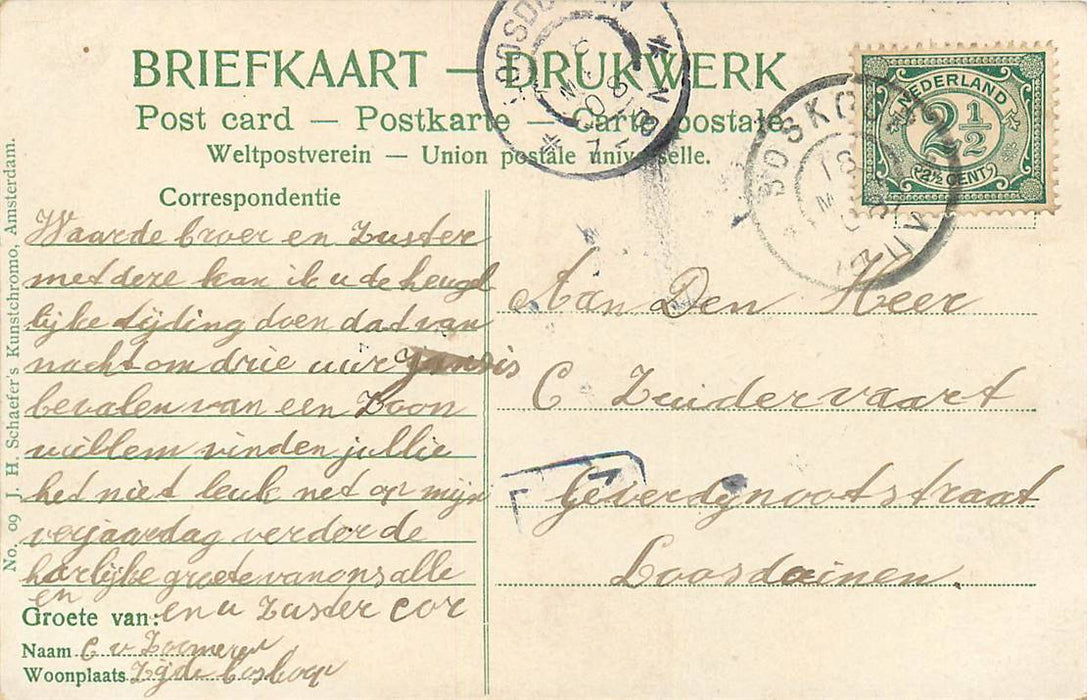 BRIEFKAART — DRUKWERK
Post card — Postkarte — Carte postale
Weltpostverein — Union postale universelle.
NEDERLAND
2½
2½ CENT
Correspondentie
Waarde broer en Zuster
met deze kan ik u de heugl
lijke tijding doen dat van
nacht om drie uur Jans is
bevalen van een Zoon
willem vinden jullie
het niet leuk net op mijn
verjaardag verder de
hartlijke groete van ons alle
en
Groete van: en u Zuster Cor
Naam C v Zoomeren
Woonplaats Zijde boskoop
Aan Den Heer
C Zuidervaart
Geverdijnootstraat
Loosduinen.
No. 09 J. H. Schaefer's Kunstchromo, Amsterdam.